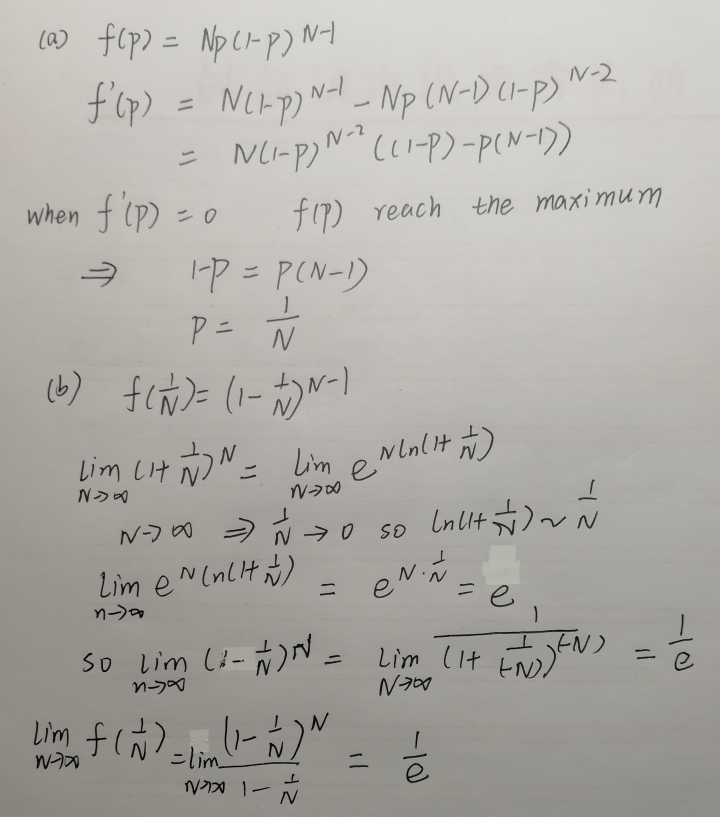 (a) f(p) = Np(1-p)^{N-1}
f'(p) = N(1-p)^{N-1} - Np(N-1)(1-p)^{N-2}
= N(1-p)^{N-2}((1-p)-p(N-1))
when f'(p) = 0 f(p) reach the maximum
⇒ 1-p = p(N-1)
p = \frac{1}{N}
(b) f(\frac{1}{N}) = (1-\frac{1}{N})^{N-1}
\lim_{N→∞} (1+\frac{1}{N})^N = \lim_{N→∞} e^{N ln(1+\frac{1}{N})}
N→∞ ⇒ \frac{1}{N} → 0 so ln(1+\frac{1}{N}) ~ \frac{1}{N}
\lim_{n→∞} e^{N ln(1+\frac{1}{N})} = e^{N·\frac{1}{N}} = e
so \lim_{n→∞} (1-\frac{1}{N})^N = \lim_{N→∞} \frac{1}{(1+\frac{1}{(-N)})^{(-N)}} = \frac{1}{e}
\lim_{N→∞} f(\frac{1}{N}) = \lim_{N→∞} \frac{(1-\frac{1}{N})^N}{1-\frac{1}{N}} = \frac{1}{e}